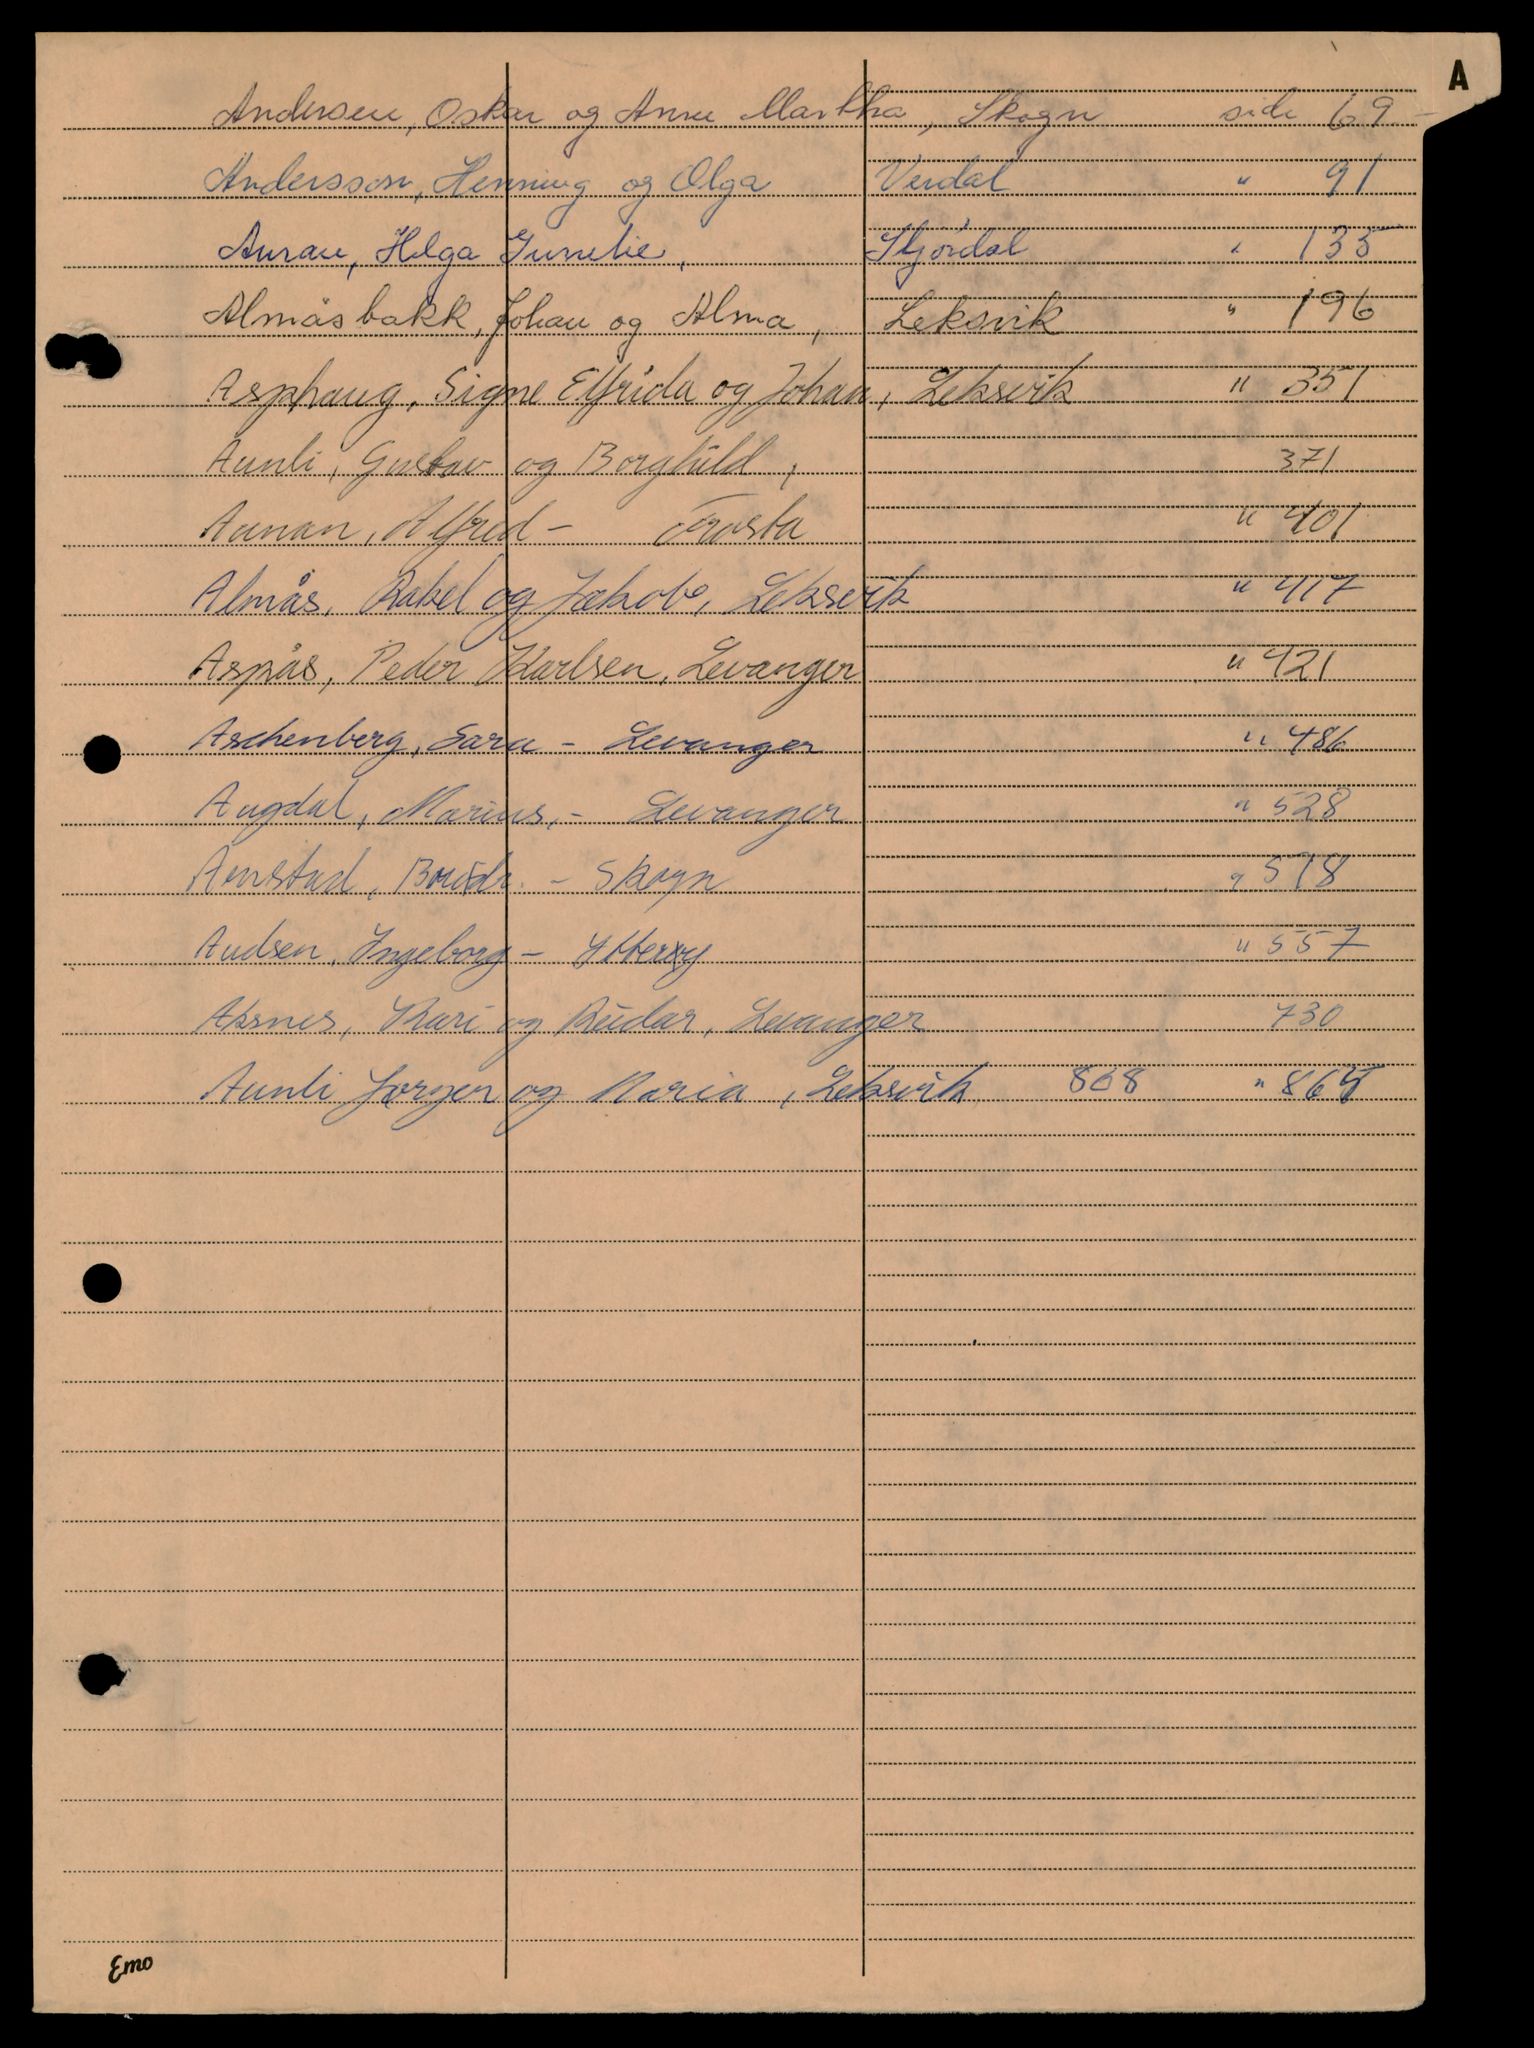 A
Andersen, Oskar og Anna Martha, Skogn side 69
Andersson, Henning og Olga Verdal " 91
Auran, Helga Gunelie, Stjördal " 135
Almåsbakk, Johan og Alma, Leksvik " 196
Asphaug, Signe Elfrida og Johan, Leksvik " 351
Aunli, Gustav og Borghild, 371
Aunan, Alfred - Frosta " 401
Almås, Rakel og Jakob, Leksvik " 417
Aspås, Peder Karlsen, Levanger " 421
Aschenberg, Sara - Levanger " 486
Augdal, Marius, - Levanger " 528
Aunstad, - Skogn " 518
Audsen, Ingeborg - Ytterøy " 557
Aksnes, Kari og Reidar, Levanger 730
Aunli Jørgen og Maria, Leksvik 868 "
Emo